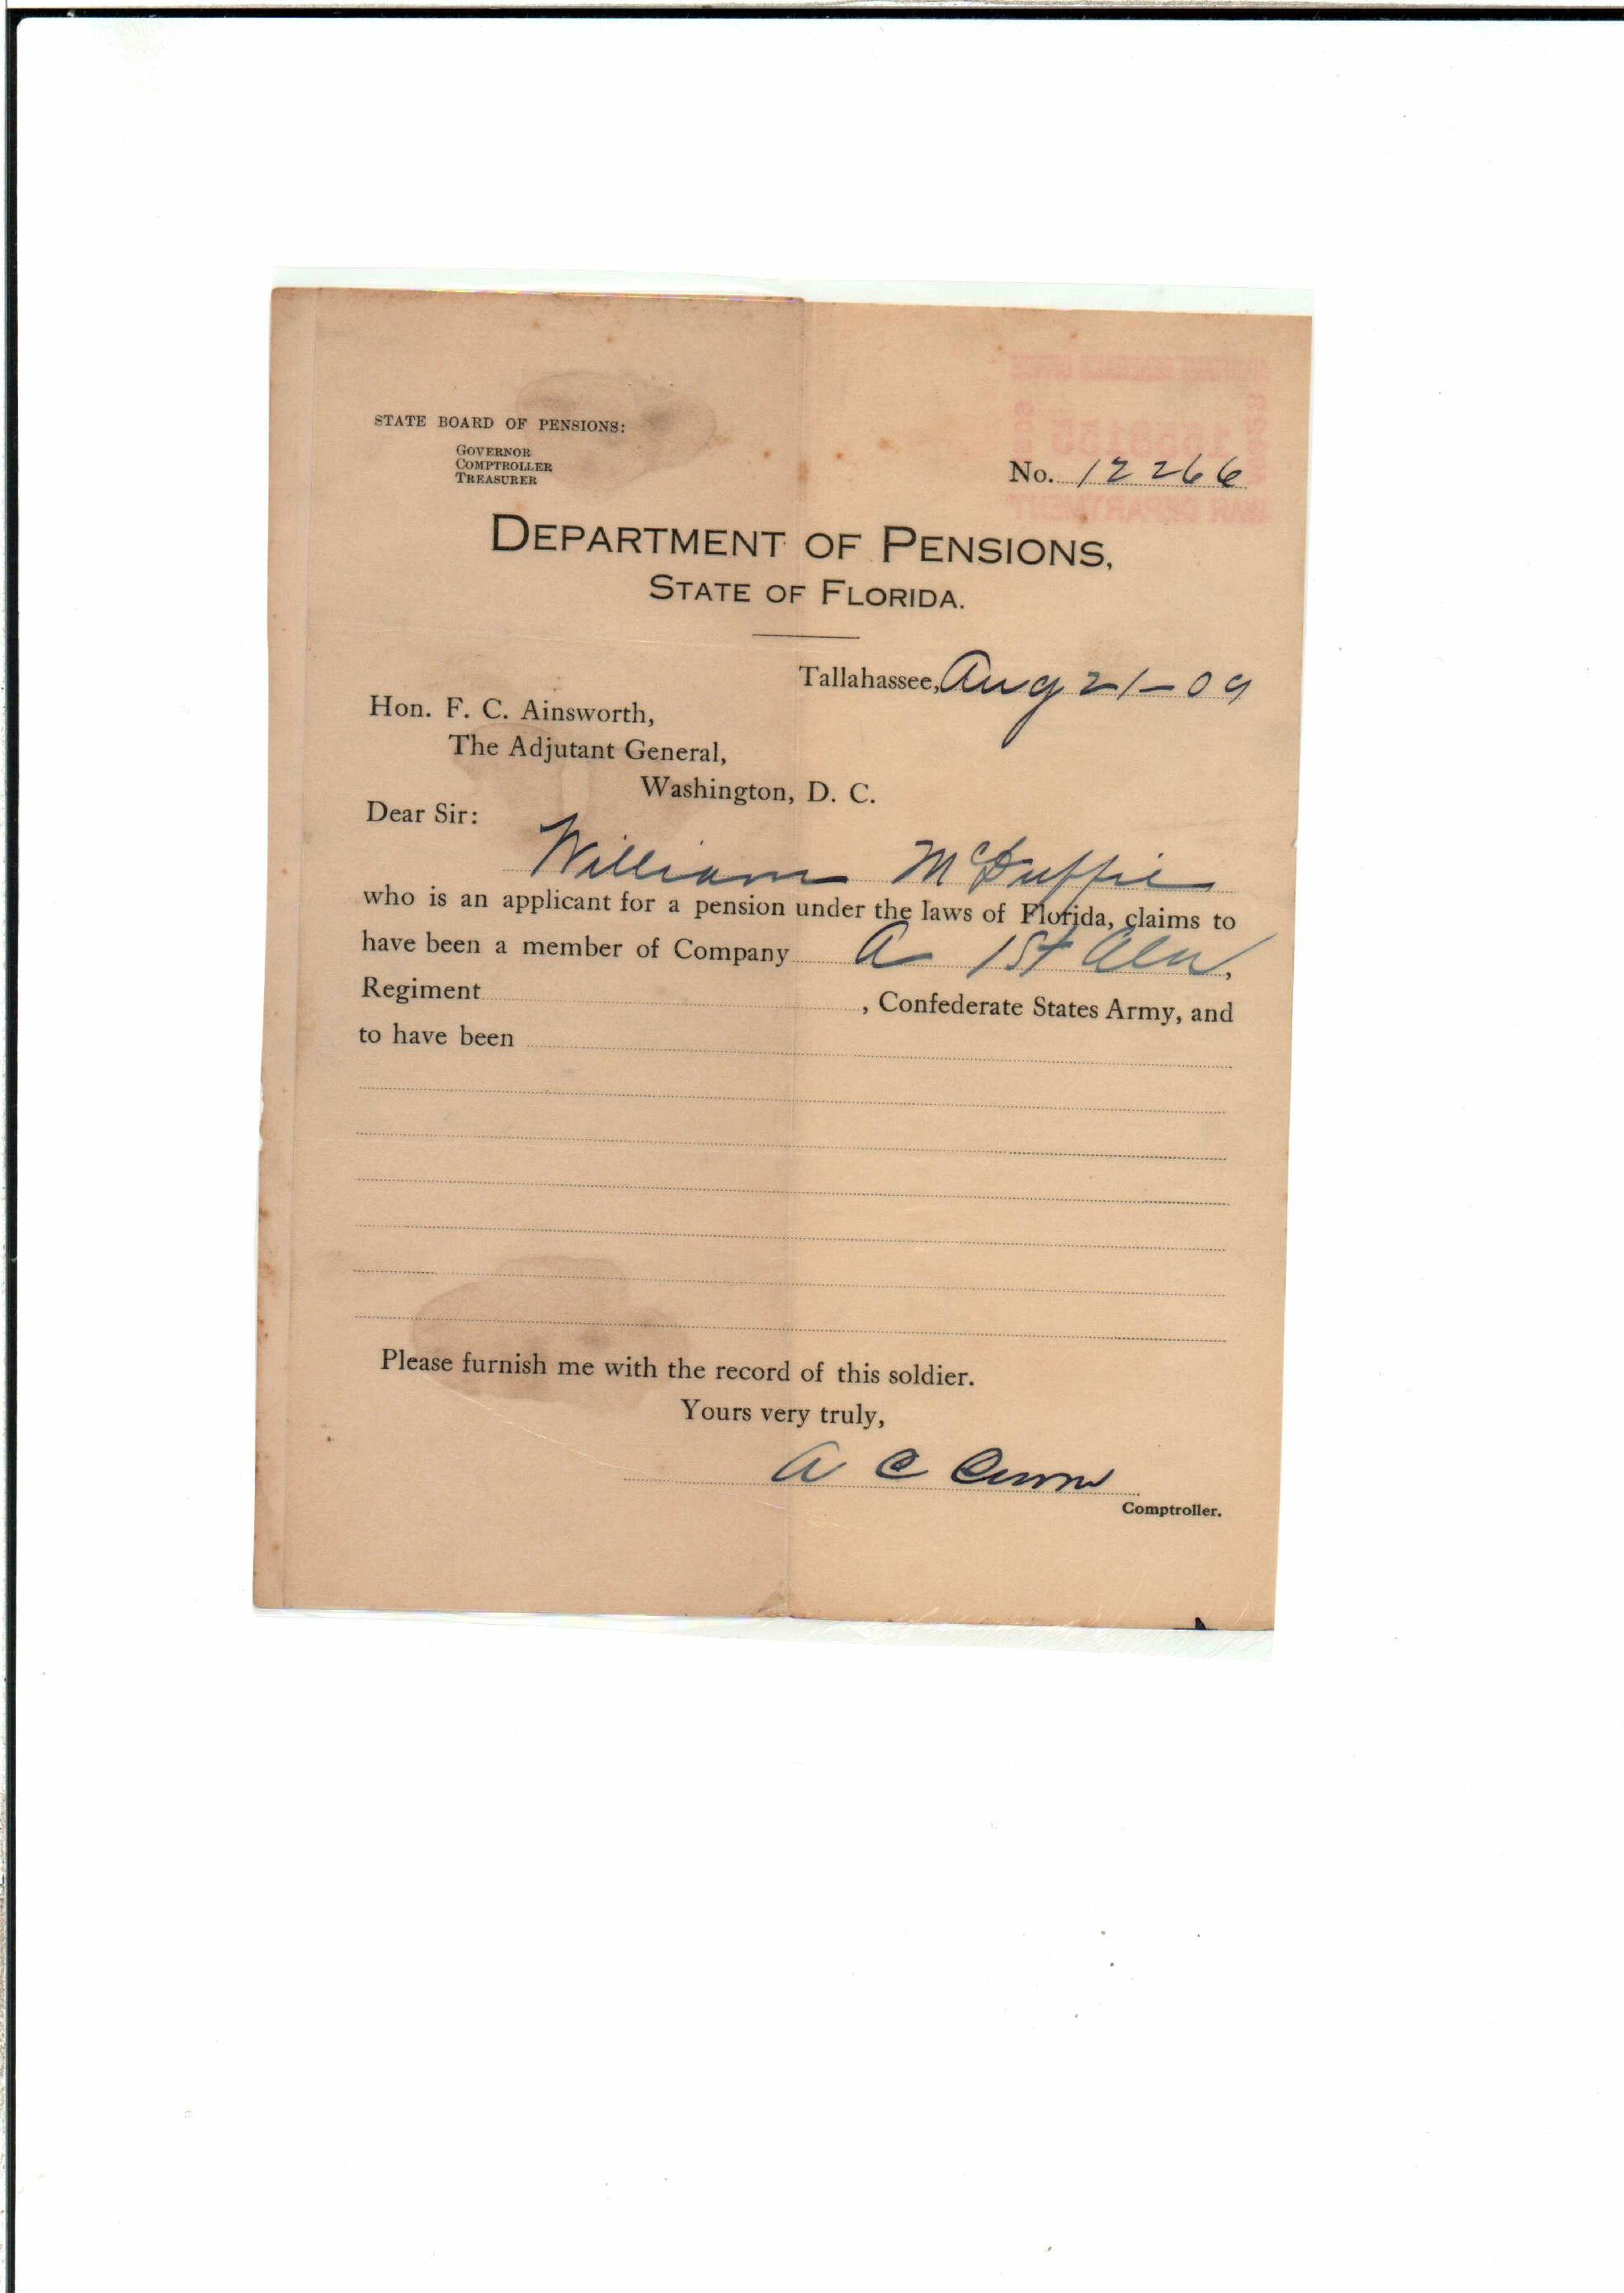 STATE BOARD OF PENSIONS:
GOVERNOR
COMPTROLLER
TREASURER
No. 12266
DEPARTMENT OF PENSIONS,
STATE OF FLORIDA.
Tallahassee, Aug 21-09
Hon. F. C. Ainsworth,
The Adjutant General,
Washington, D. C.
Dear Sir:
William McDuffie
who is an applicant for a pension under the laws of Florida, claims to
have been a member of Company A 1st Ala,
Regiment , Confederate States Army, and
to have been
Please furnish me with the record of this soldier.
Yours very truly,
A C Croom
Comptroller.